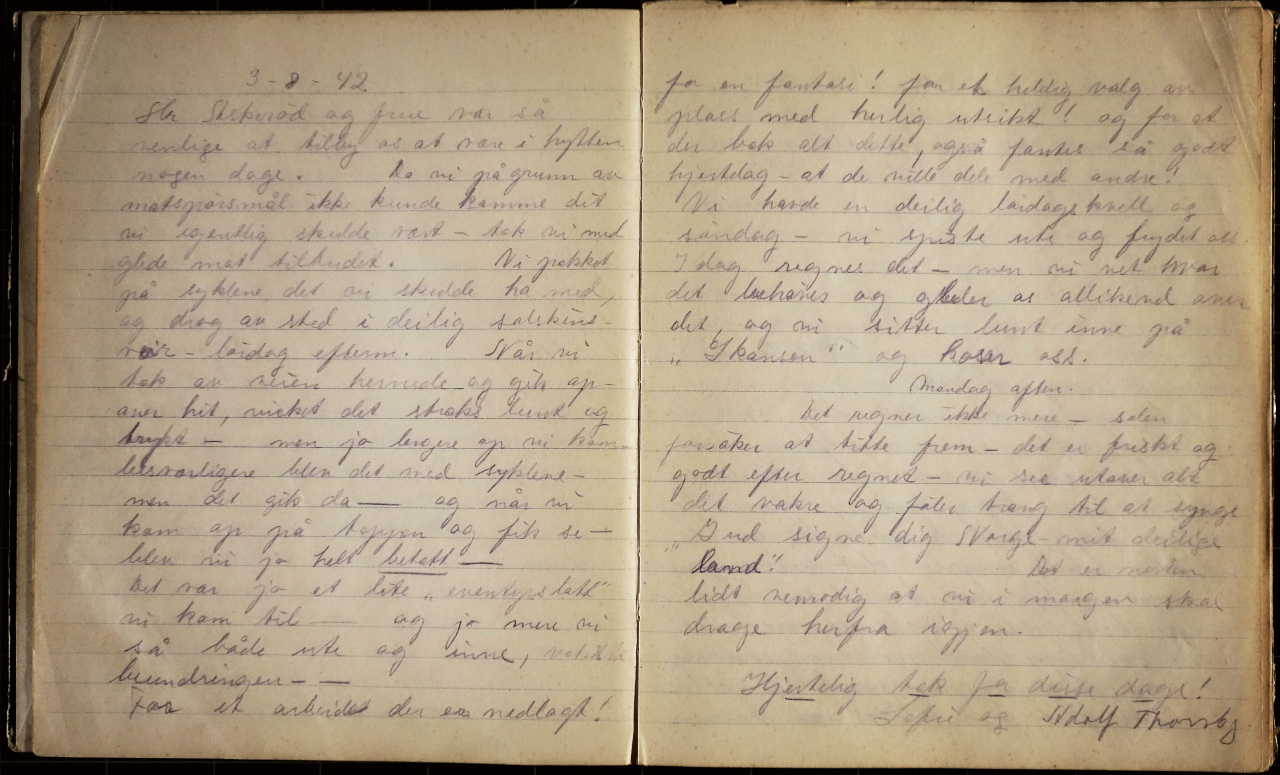 3-8-42
Hr. og frue var så
venlige at tilby os at være i hytten
nogen dage. Da vi på grunn av
matspørsmål ikke kunde komme dit
vi egentlig skulde vært - tok vi med
glede mot tilbudet. Vi pakket
på syklene det vi skulde ha med,
og drog av sted i deilig solskins-
vær - lørdag efterm. Når vi
tok av veien hernede og gik op-
over hit, virket det straks lunt og
trykt - men jo lengere op vi kom-
besværligere blev det med syklene -
men det gik da — og når vi
kom op på toppen og fik se -
blev vi jo helt betatt —
Det var jo et lite „eventyrslott"
vi kom til — og jo mere vi
så både ute og inne,
beundringen - —
For et arbeide der er nedlagt!
for en fantasi! for et heldig valg av
plass med herlig utsikt! og for at
der bak alt dette, også fantes så godt
hjertelag - at de ville dele med andre!
Vi havde en deilig lørdagskvell og
søndag - vi spiste ute og frydet oss.
I dag regnes det - men vi vet hvor
det behøves og gleder os allikevel over
det, og vi sitter lunt inne på
„Skansen" og koser oss.
Mandag aften.
Det regner ikke mere - solen
forsøker at titte frem - det er friskt og
godt efter regnet - vi ser utover alt
det vakre og føler trang til at synge
„Gud signe dig Norge mit deilige
land". Det er nesten
lidt vemodig at vi i morgen skal
drage herfra igjen.
Hjertelig tak for disse dage!
og Adolf Thorsby